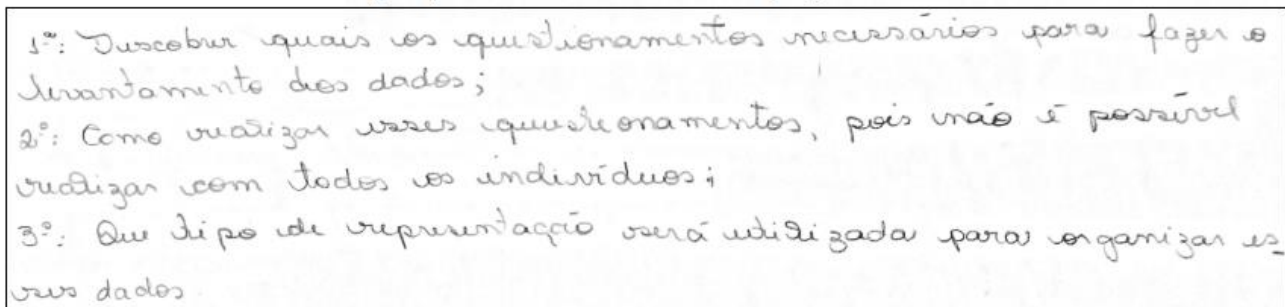 1º: Descobrir quais os questionamentos necessários para fazer o
levantamento dos dados;
2º: Como realizar esses questionamentos, pois não é possível
realizar com todos os indivíduos;
3º: Que tipo de representação será utilizada para organizar es-
ses dados.